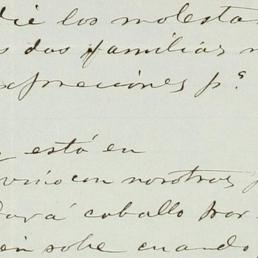 die los molesta
s dos familias
espresiones p.s
está en
vino con nosotros p
dará caballo por
ien sobe cuando